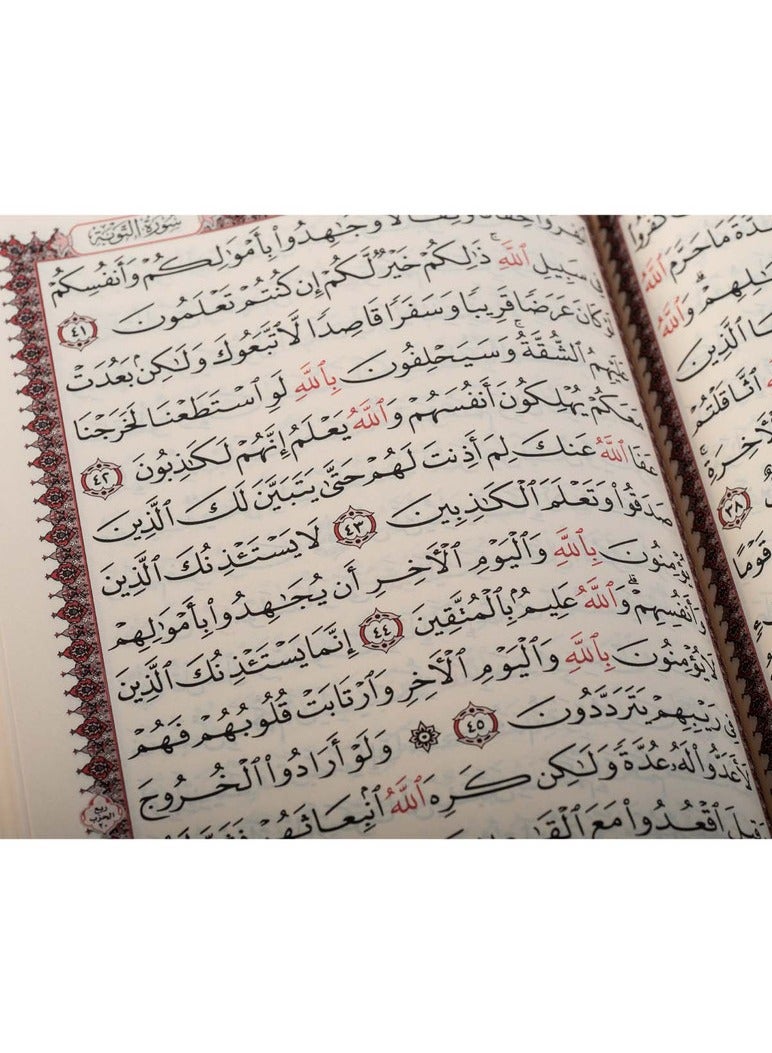 سورة التوبة
انفروا خفافا وثقالا وَجَٰهِدُوا۟ بِأَمْوَٰلِكُمْ وَأَنفُسِكُمْ
فِى سَبِيلِ ٱللَّهِ ۚ ذَٰلِكُمْ خَيْرٌ لَّكُمْ إِن كُنتُمْ تَعْلَمُونَ ٤١
لَوْ كَانَ عَرَضًا قَرِيبًا وَسَفَرًا قَاصِدًا لَّٱتَّبَعُوكَ وَلَٰكِنۢ بَعُدَتْ
عَلَيْهِمُ ٱلشُّقَّةُ ۚ وَسَيَحْلِفُونَ بِٱللَّهِ لَوِ ٱسْتَطَعْنَا لَخَرَجْنَا
مَعَكُمْ يُهْلِكُونَ أَنفُسَهُمْ وَٱللَّهُ يَعْلَمُ إِنَّهُمْ لَكَٰذِبُونَ ٤٢
عَفَا ٱللَّهُ عَنكَ لِمَ أَذِنتَ لَهُمْ حَتَّىٰ يَتَبَيَّنَ لَكَ ٱلَّذِينَ
صَدَقُوا۟ وَتَعْلَمَ ٱلْكَٰذِبِينَ ٤٣ لَا يَسْتَـْٔذِنُكَ ٱلَّذِينَ
يُؤْمِنُونَ بِٱللَّهِ وَٱلْيَوْمِ ٱلْـَٔاخِرِ أَن يُجَٰهِدُوا۟ بِأَمْوَٰلِهِمْ
وَأَنفُسِهِمْ ۗ وَٱللَّهُ عَلِيمٌۢ بِٱلْمُتَّقِينَ ٤٤ إِنَّمَا يَسْتَـْٔذِنُكَ ٱلَّذِينَ
لَا يُؤْمِنُونَ بِٱللَّهِ وَٱلْيَوْمِ ٱلْـَٔاخِرِ وَٱرْتَابَتْ قُلُوبُهُمْ فَهُمْ
فِى رَيْبِهِمْ يَتَرَدَّدُونَ ٤٥ وَلَوْ أَرَادُوا۟ ٱلْخُرُوجَ
لَأَعَدُّوا۟ لَهُۥ عُدَّةً وَلَٰكِن كَرِهَ ٱللَّهُ ٱنۢبِعَاثَهُمْ
وَقِيلَ ٱقْعُدُوا۟ مَعَ
ربع
الحزب
٢٠
كفروا
مَا حَرَّمَ ٱللَّهُ
وَٱللَّهُ
ٱلَّذِينَ
ٱثَّاقَلْتُمْ
ٱلْـَٔاخِرَةِ
٣٨
قَوْمًا